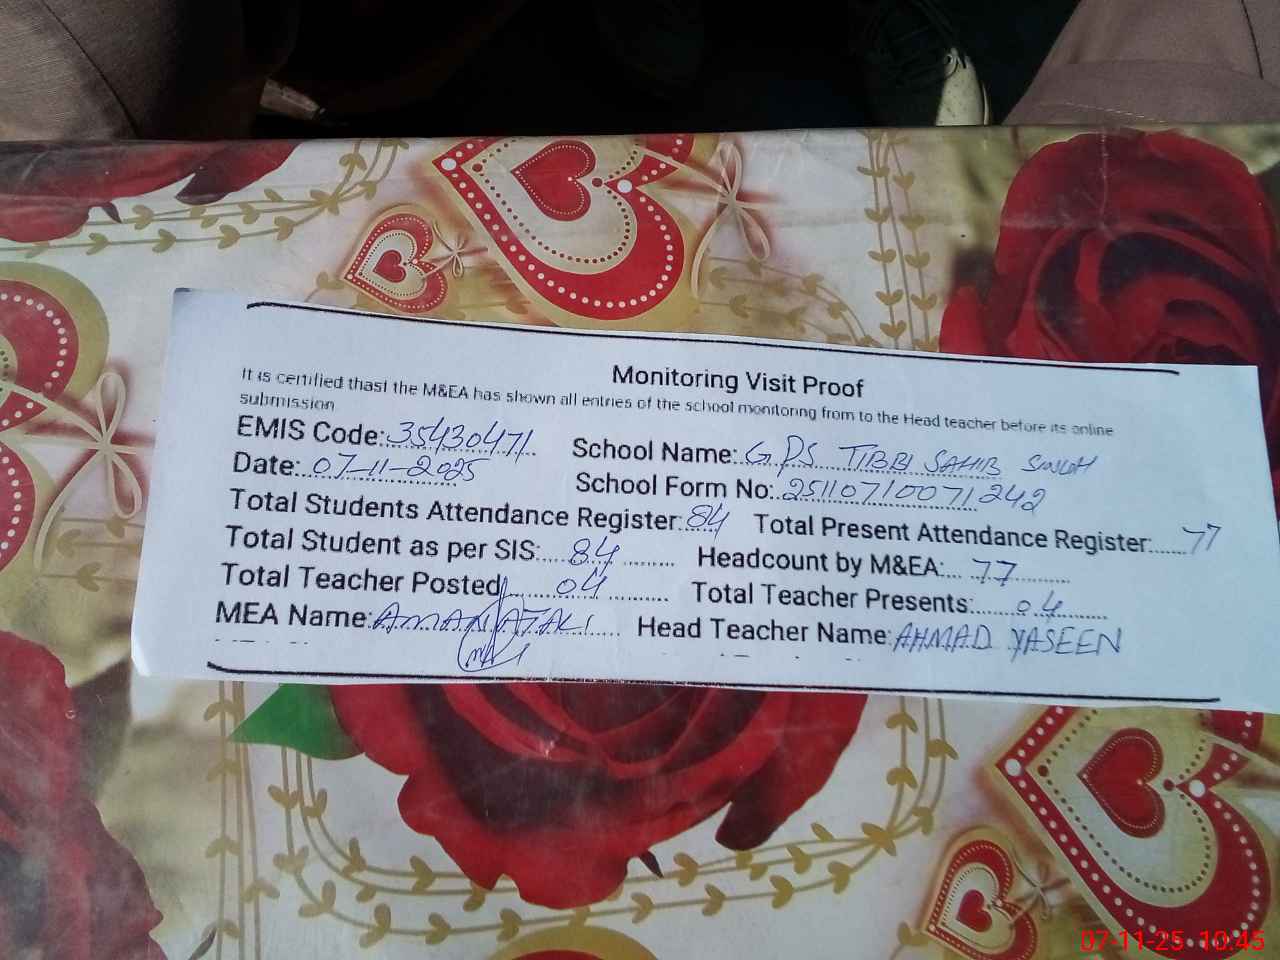 Monitoring Visit Proof
It is certified thast the M&EA has shown all entries of the school monitoring from to the Head teacher before its online
submission
EMIS Code: 35430471 School Name: G.PS TIBBI SAHIB SINGH
Date: 07-11-2025 School Form No: 25110710071242
Total Students Attendance Register: 84 Total Present Attendance Register: 77
Total Student as per SIS: 84 Headcount by M&EA: 77
Total Teacher Posted 04 Total Teacher Presents: 04
MEA Name: AMANAT ALI Head Teacher Name: AHMAD YASEEN
07-11-25 10:45